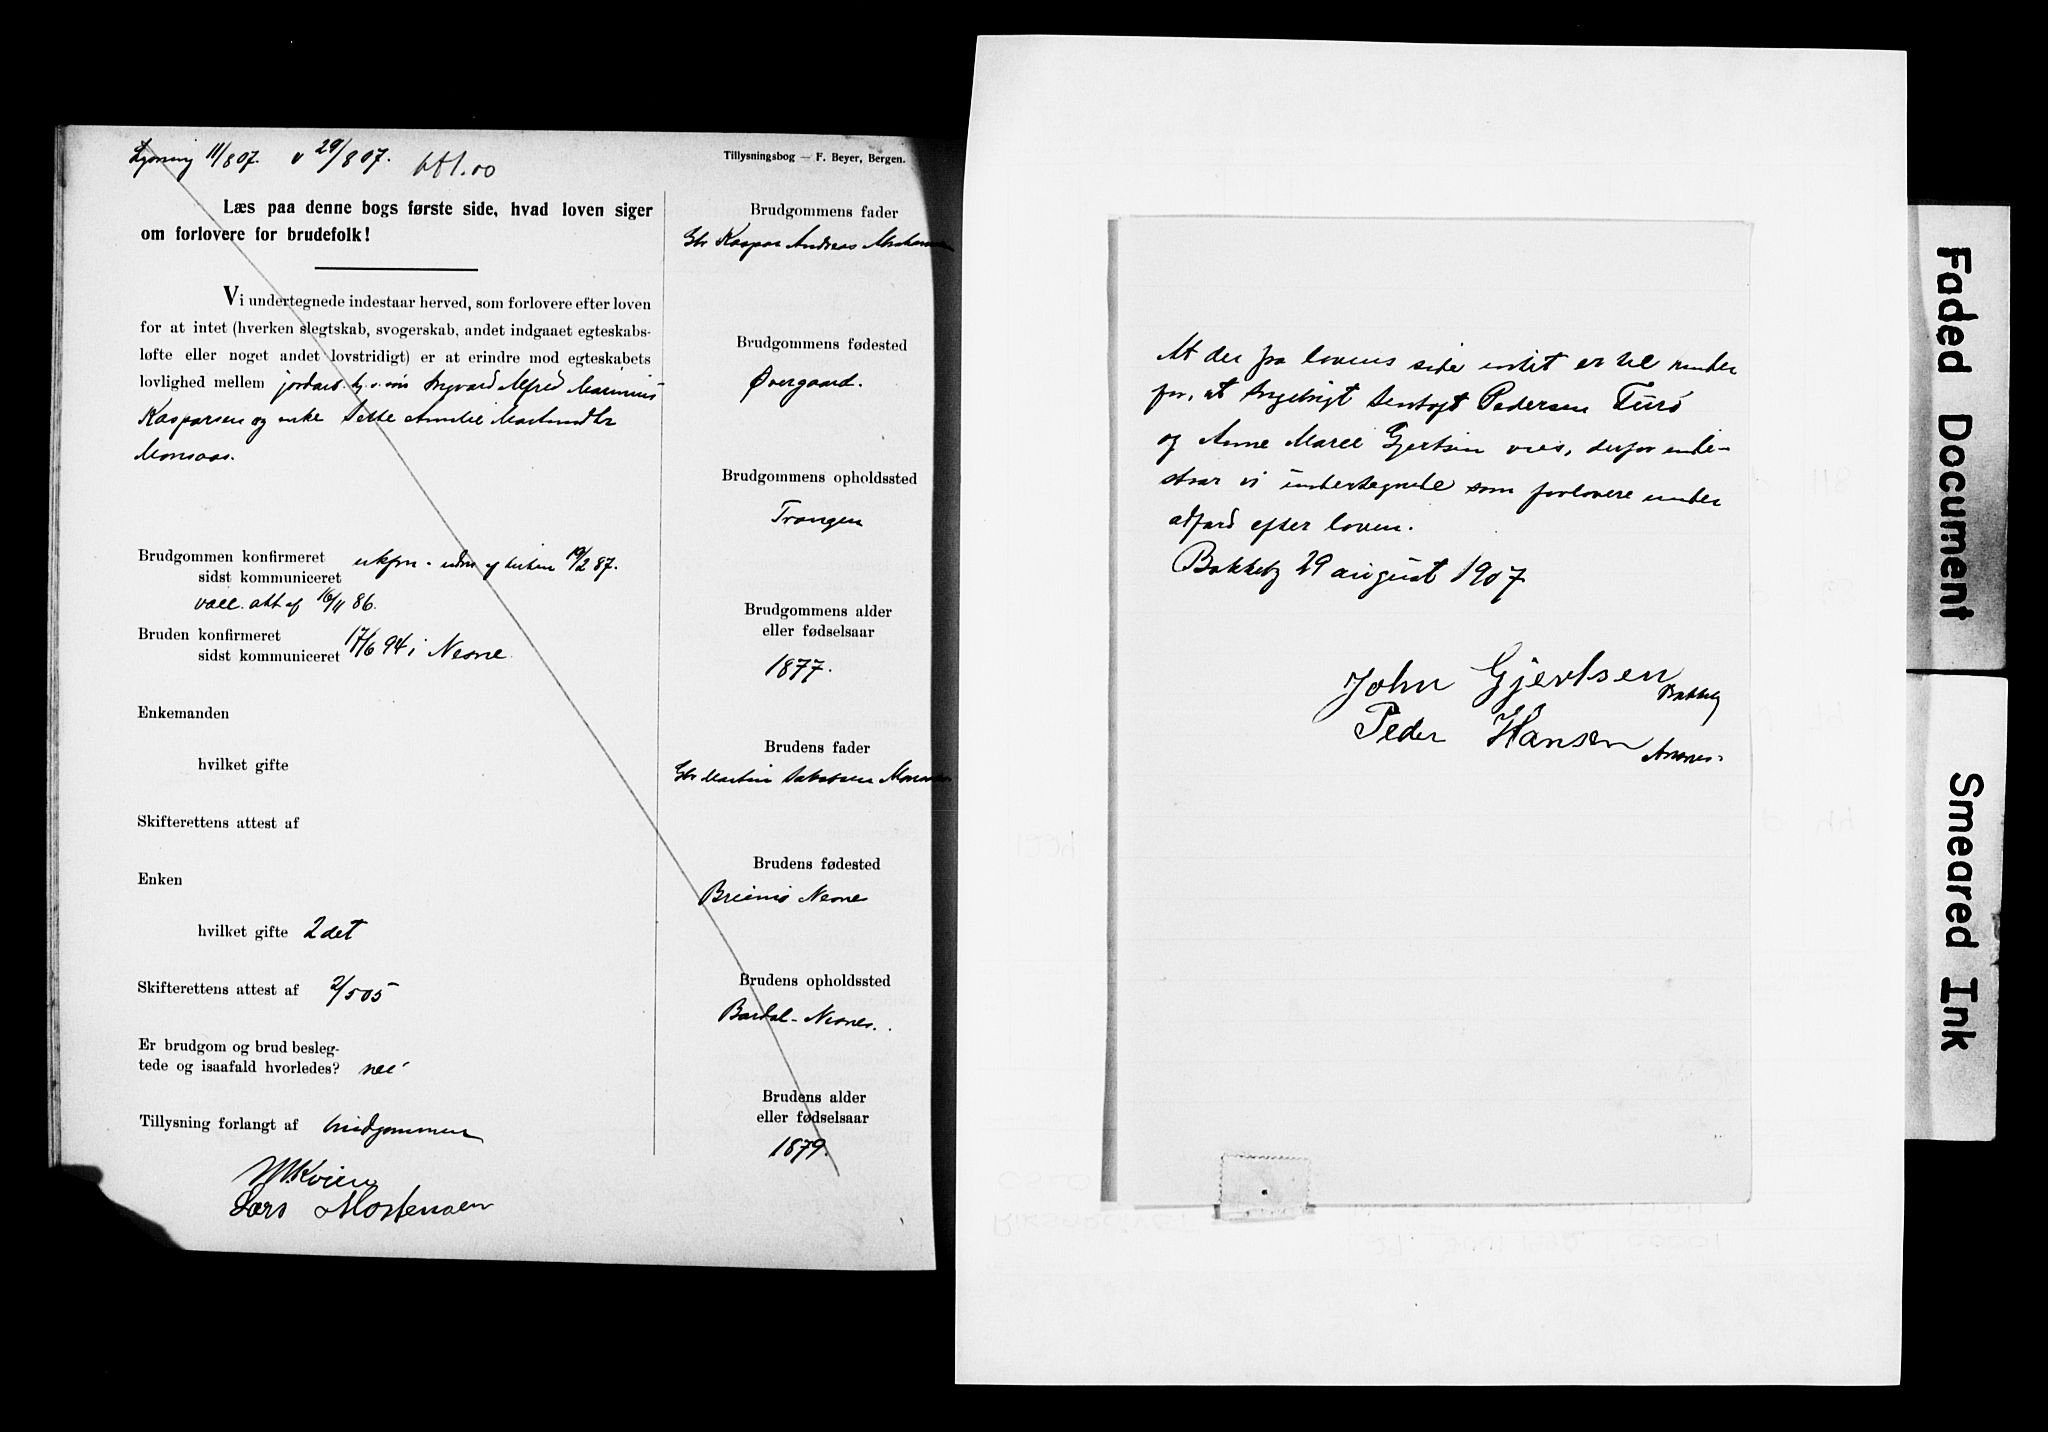 Lysning 11/8 07. v 29/8 07. btl. 00
Tillysningsbog — F. Beyer, Bergen.
Læs paa denne bogs første side, hvad loven siger
om forlovere for brudefolk!
Vi undertegnede indestaar herved, som forlovere efter loven
for at intet (hverken slegtskab, svogerskab, andet indgaaet egteskabs-
løfte eller noget andet lovstridigt) er at erindre mod egteskabets
lovlighed mellem jordarb. Ingvard Alfred Marinius
Kasparsen og enke Jette Amalie
Monsaas.
Brudgommen konfirmeret ukfm. 19/2 87.
sidst kommuniceret
vacc. att af 16/11 86.
Bruden konfirmeret 17/6 94 i Nesne
sidst kommuniceret
Enkemanden
hvilket gifte
Skifterettens attest af
Enken
hvilket gifte 2det
Skifterettens attest af 2/5 05
Er brudgom og brud besleg-
tede og isaafald hvorledes? nei
Tillysning forlangt af brudgommen
Lars Mortensen
Brudgommens fader
Gbr Kaspar Andreas
Brudgommens fødested
Øvergaard.
Brudgommens opholdssted
Trongen
Brudgommens alder
eller fødselsaar
1877.
Brudens fader
Gbr Martin
Brudens fødested
Nesne
Brudens opholdssted
Bardal - Nesne.
Brudens alder
eller fødselsaar
1879.
At der fra lovens side intet er til hinder
for, at Ingebrigt Pedersen Turø
og Anne Marie Gjertsen vies, derfor inde-
staar vi undertegnede som forlovere under
adfærd efter loven.
Bakkeby 29 august 1907
John Gjertsen Bakkeby
Peder Hansen
Faded Document
Smeared Ink